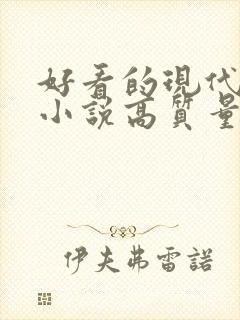 好看的現代
小說高質量
伊夫弗雷諾